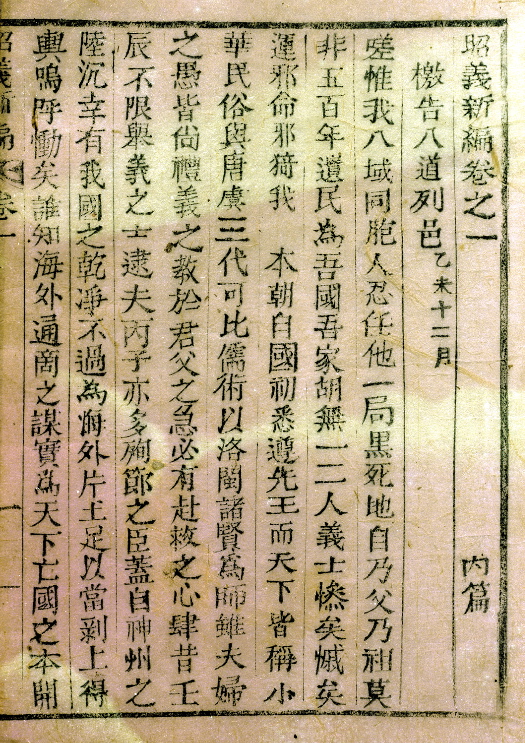 昭義新編卷之一　內篇
檄告八道列邑 乙未十二月
嗟惟我八域同胞人忍任他一局黑死地自乃父乃祖莫
非五百年遺民為吾國吾家胡無一二人義士慘矣慽矣
運邪命邪猗我　本朝自國初悉遵先王而天下皆稱小
華民俗與唐虞三代可比儒術以洛閩諸賢為師雖夫婦
之愚皆尙禮義之教於君父之急必有赴救之心肆昔壬
辰不限舉義之士逮夫丙子亦多殉節之臣蓋自神州之
陸沉幸有我國之乾淨不過為海外片土足以當剝上得
輿嗚呼慟矣誰知海外通商之謀實為天下亡國之本開
昭義新編 卷一 一